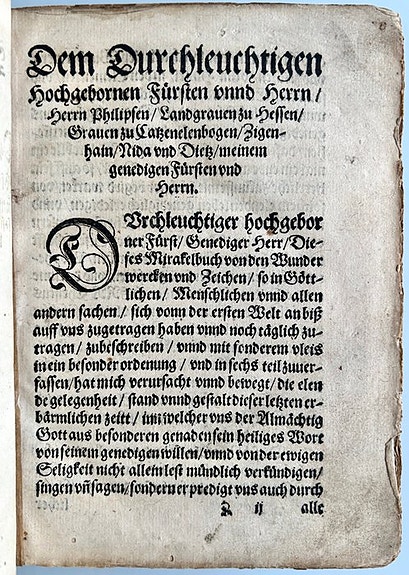 Dem Durchleuchtigen
Hochgebornen Fürsten vnnd Herrn/
Herrn Philipsen/ Landgrauen zu Hessen/
Grauen zu Catzenelenbogen/ Zigen-
hain/ Nida vnd Dietz/ meinem
genedigen Fürsten vnd
Herrn.
DVrchleuchtiger hochgebor
ner Fürst/ Genediger Herr/ Die-
ses Mirakelbuch von den Wunder
wercken vnd Zeichen/ so in Gött-
lichen/ Menschlichen vnnd allen
andern sachen/ sich vonn der ersten Welt an biß
auff vns zugetragen haben vnnd noch täglich zu-
tragen/ zubischreiben/ vnnd mit sonderem vleis
in ein besonder ordenung/ vnd in sechs teil zuuer-
fassen/ hat mich verursacht vnnd bewegt/ die elen
de gelegenheit/ stand vnnd gestalt dieser letzten er-
bärmlichen zeitt/ inn welcher vns der Almächtig
Gott aus besonderen genaden sein heiliges Wort
von seinem genedigen willen/ vnnd von der ewigen
Seligkeit nicht allein lest mündlich verkündigen/
singen vñ sagen/ sonder er predigt vns auch durch
ij alle